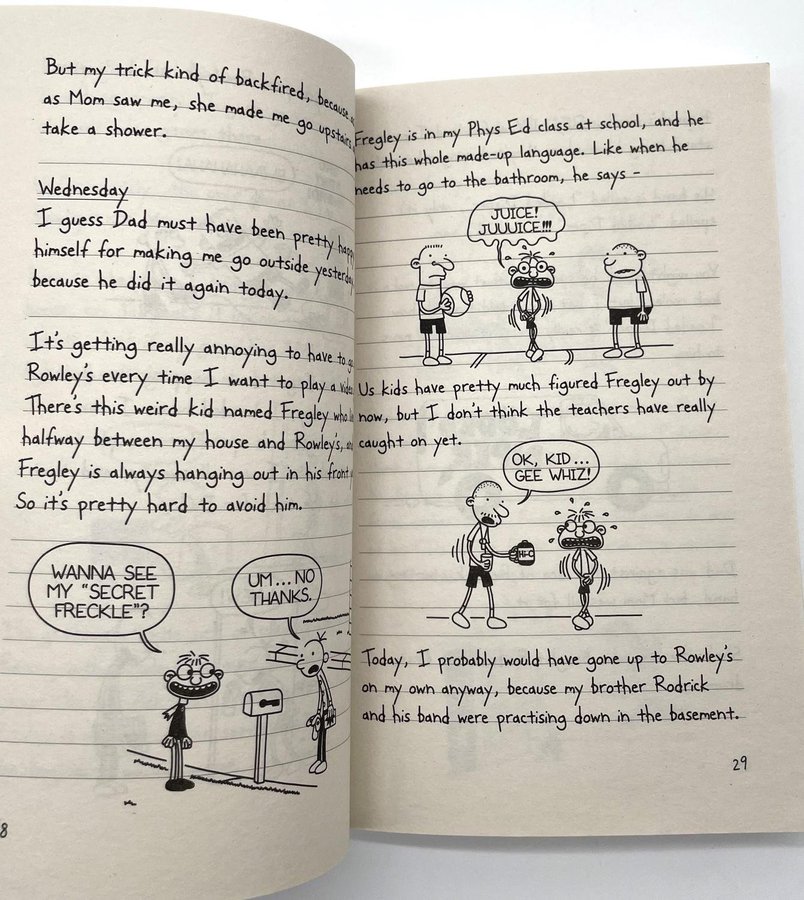 But my trick kind of backfired, because
as Mom saw me, she made me go upstairs
take a shower.
Wednesday
I guess Dad must have been pretty happy
himself for making me go outside yesterday
because he did it again today.
It's getting really annoying to have to
Rowley's every time I want to play a
There's this weird kid named Fregley who
halfway between my house and Rowley's,
Fregley is always hanging out in his front
So it's pretty hard to avoid him.
WANNA SEE
MY "SECRET
FRECKLE"?
UM...NO
THANKS.
8
Fregley is in my Phys Ed class at school, and he
has this whole made-up language. Like when he
needs to go to the bathroom, he says -
JUICE!
JUUUICE!!!
Us kids have pretty much figured Fregley out by
now, but I don't think the teachers have really
caught on yet.
OK, KID...
GEE WHIZ!
Hi-C
Today, I probably would have gone up to Rowley's
on my own anyway, because my brother Rodrick
and his band were practising down in the basement.
29